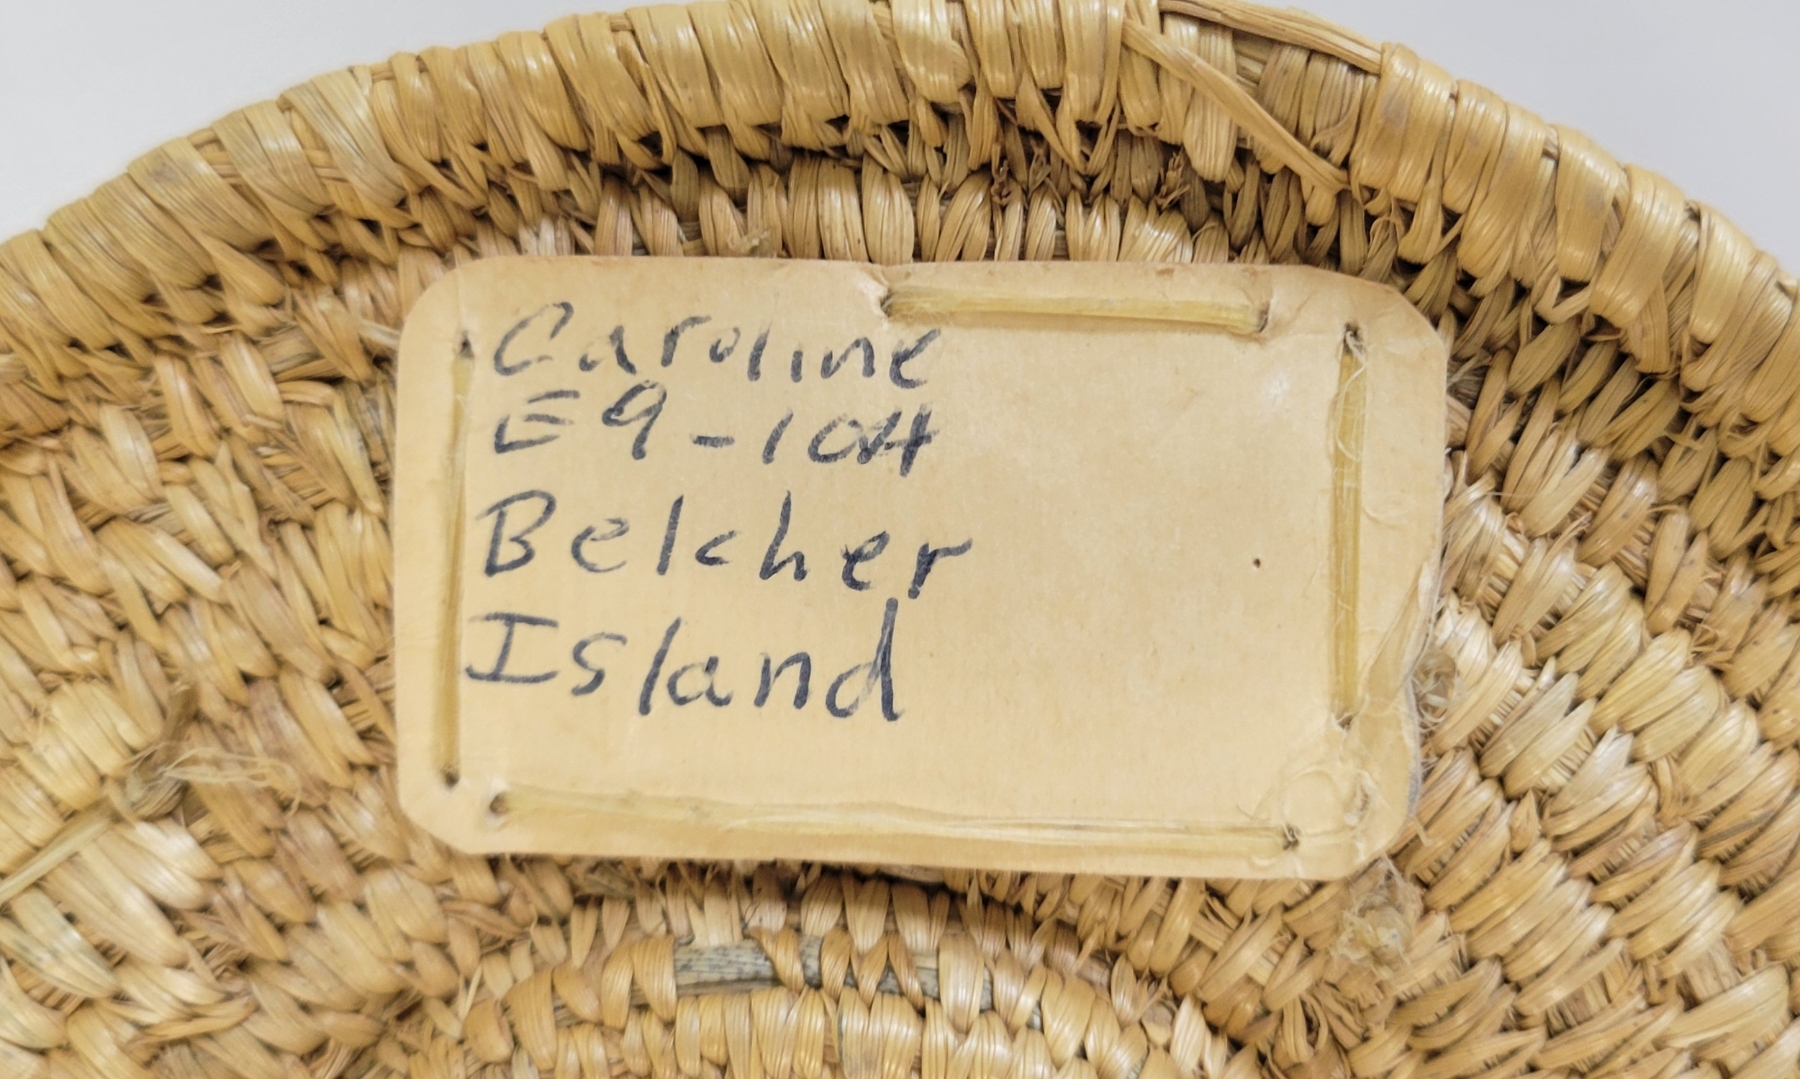 Caroline
E9-104
Belcher
Island